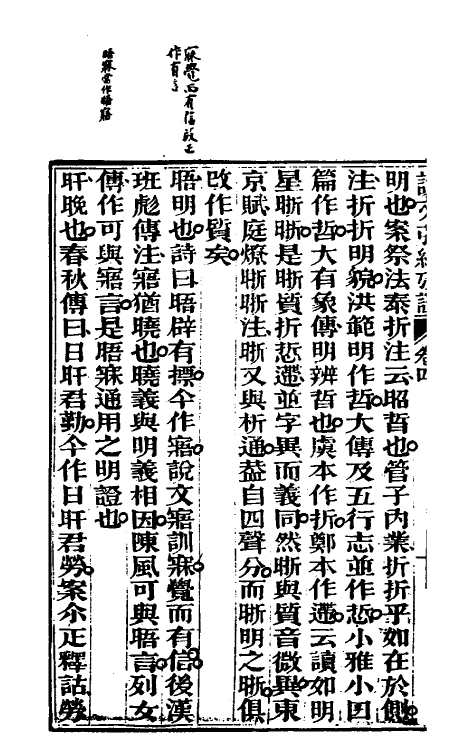 明也案祭法泰折注云昭晢也管子內業折折乎如在於側
注折折明貌洪範明作晢大傳及五行志並作悊小雅小曰
篇作哲大有象傳明辨晢也虞本作折鄭本作遰云讀如明
星晣晣是晣質折悊遰並字異而義同然晣與質音微異東
京賦庭燎晣晣注晣又與析通葢自四聲分而晣明之晣俱
改作質矣
晤明也詩曰晤辟有摽今作寤說文寤訓寐覺而有信後漢
班彪傳注寤猶曉也曉義與明義相因陳風可與晤言列女
傳作可與寤言是晤寐通用之明證也
旰晚也春秋傳曰日旰君勤今作日旰君勞案尒正釋詁勞
寐覺而有信段正
作有言
晤寐當作晤寤